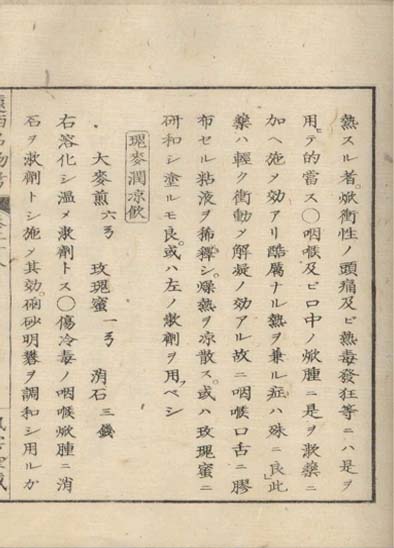 熱スル者。焮衝性ノ頭痛及ビ熱毒發狂等ニハ是ヲ
用ヒテ的當ス〇咽喉及ビ口中ノ焮腫ニ是ヲ漱藥ニ
加ヘ施メ効アリ酷厲ナル熱ヲ兼ル症ハ殊ニ良此
藥ハ輕ク衝動メ解凝ノ効アル故ニ咽喉口舌ニ膠
布セル粘液ヲ稀釋シ。燥熱ヲ凉散ス。或ハ玫瑰蜜ニ
研和シ塗ルモ良。或ハ左ノ漱劑ヲ用フベシ
瑰麥潤凉飮
大麥煎 六 玫瑰蜜 一 消石 三
右溶化シ温メ漱劑トス〇傷冷毒ノ咽喉焮腫ニ消
石ヲ漱劑トシ施メ其効。硇砂明礬ヲ調和シ用ルカ